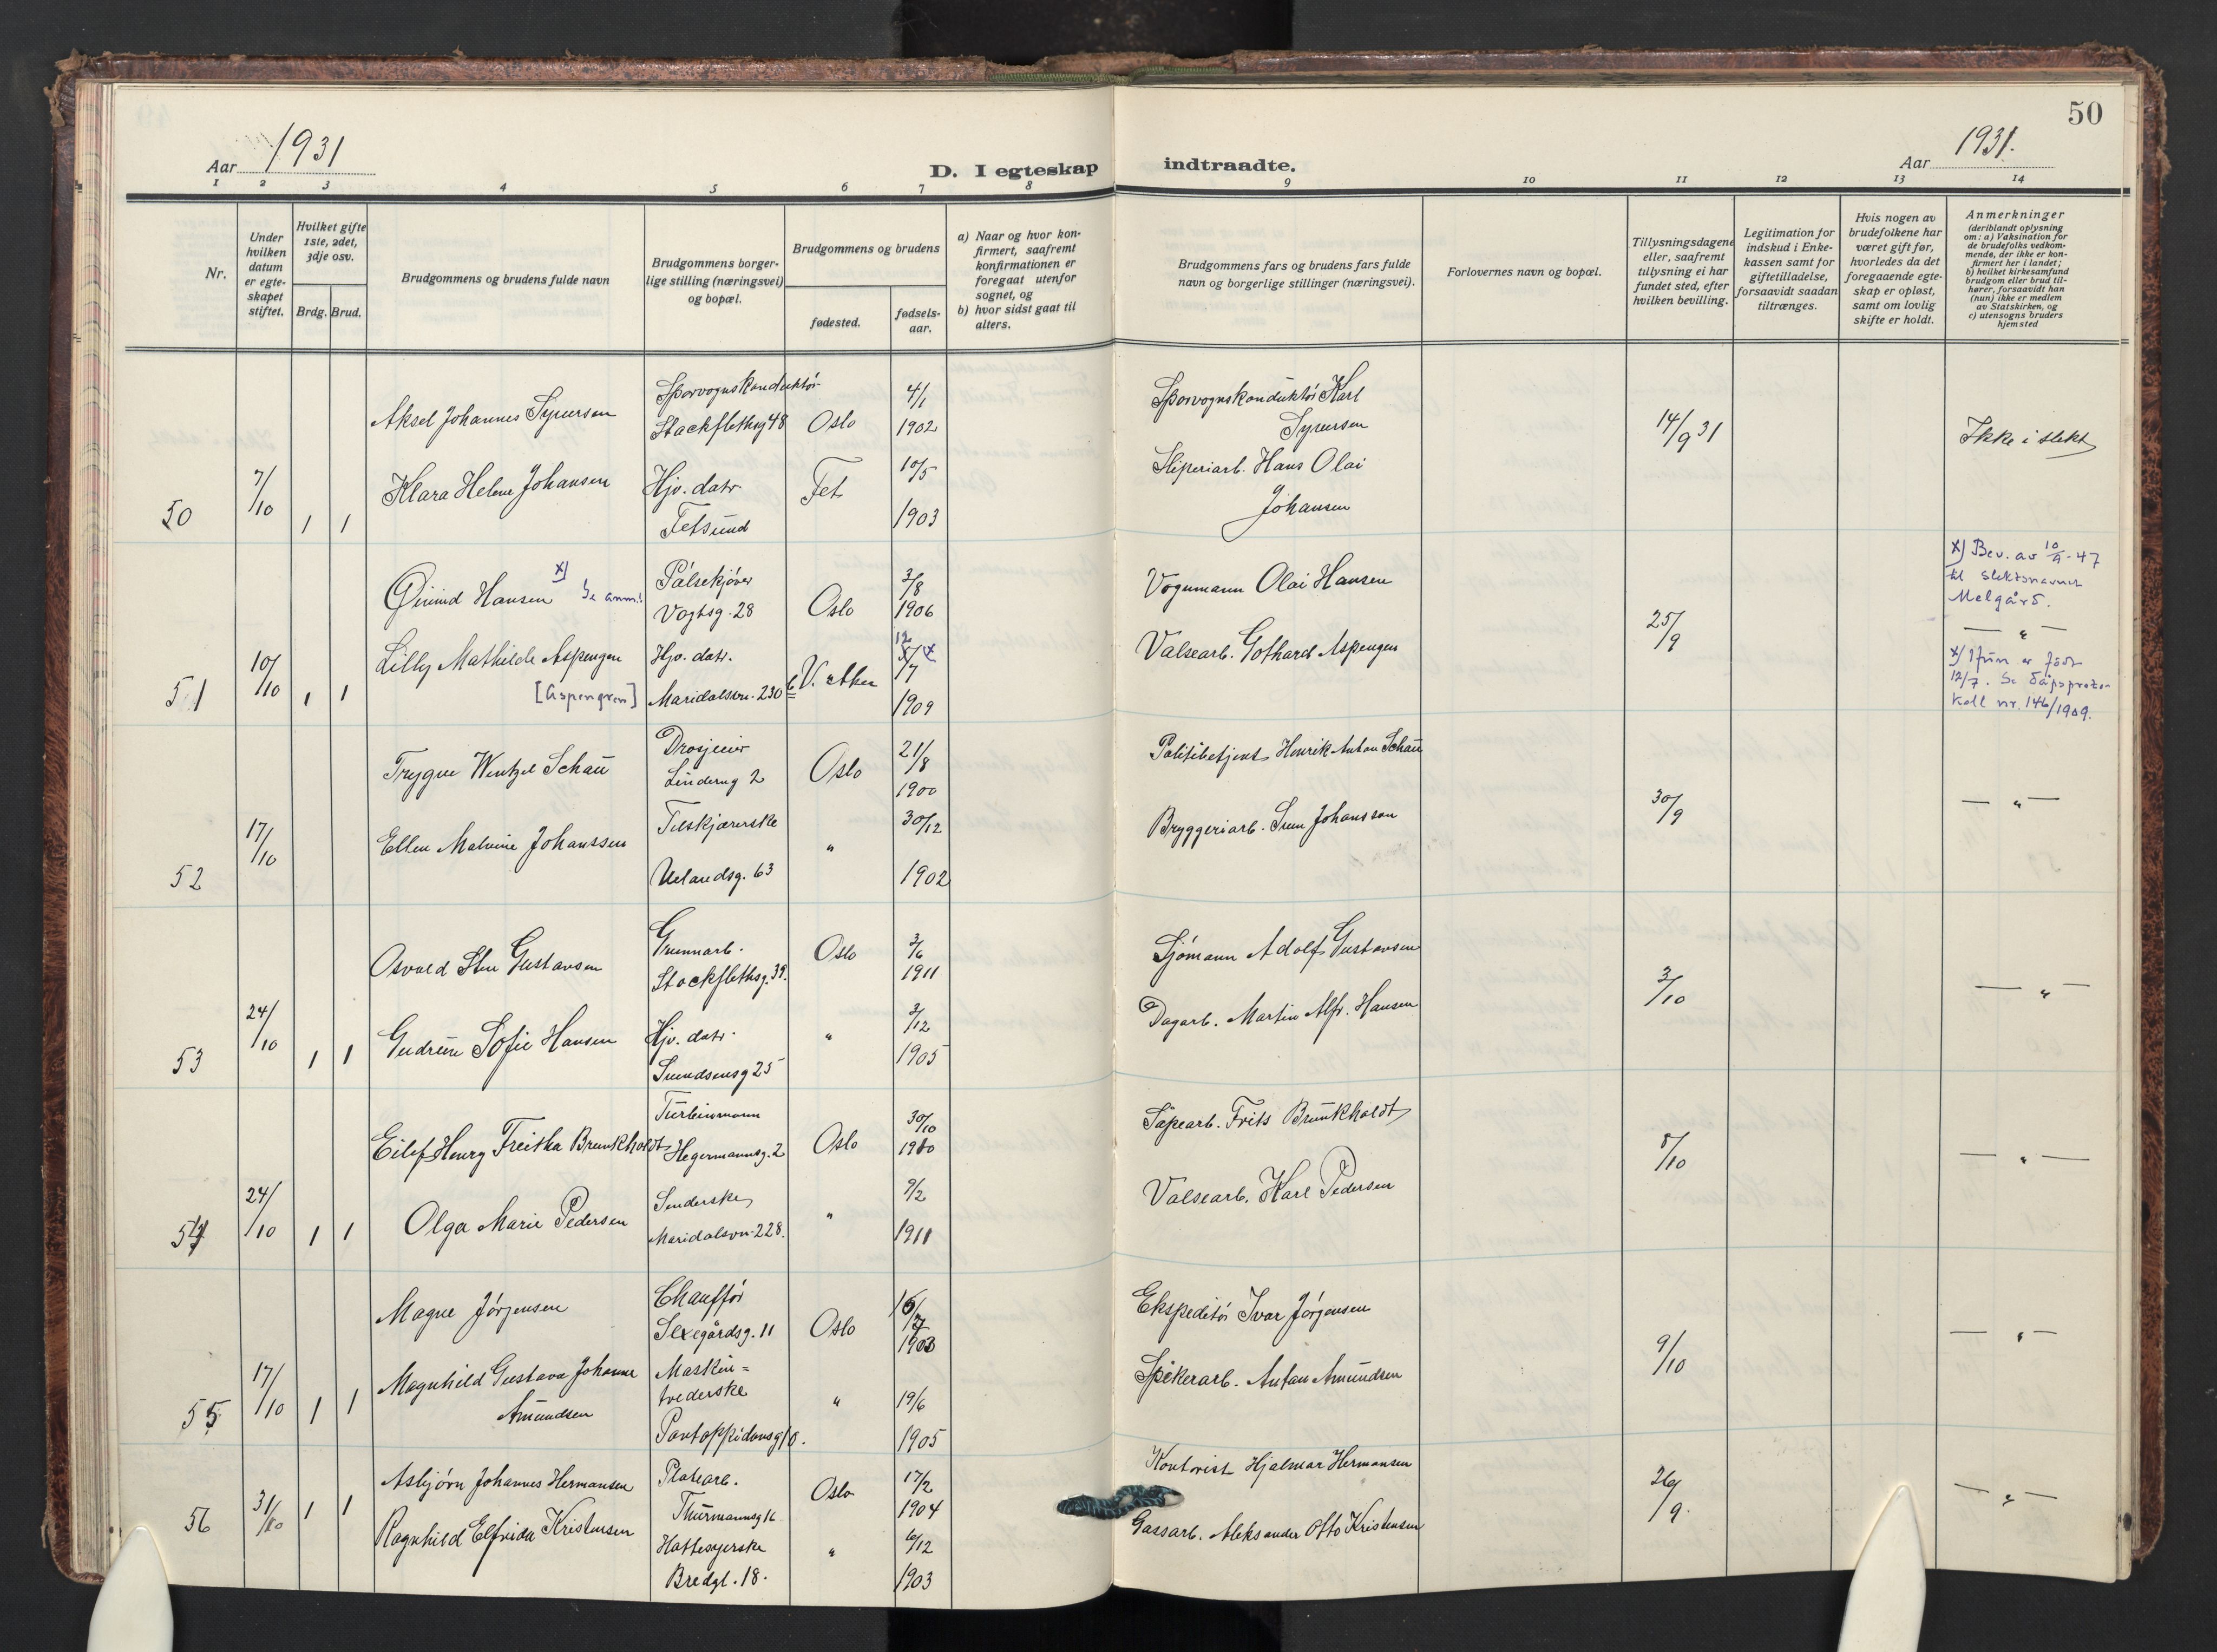 50
Aar 1931
D. I egteskap indtraadte.
Aar 1931.
1 2 3 4 5 6 7 8 9 10 11 12 13 14
Nr.
Under hvilken datum er egte-skapet stiftet.
Hvilket gifte 1ste, 2det, 3dje osv.
Brdg. Brud.
Brudgommens og brudens fulde navn
Brudgommens borger-lige stilling (næringsvei) og bopæl.
Brudgommens og brudens
fødested.
fødsels-aar.
a) Naar og hvor kon-firmert, saafremt konfirmationen er foregaat utenfor sognet, og
b) hvor sidst gaat til alters.
Brudgommens fars og brudens fars fulde navn og borgerlige stillinger (næringsvei).
Forlovernes navn og bopæl.
Tillysningsdagene eller, saafremt tillysning ei har fundet sted, efter hvilken bevilling.
Legitimation for indskud i Enke-kassen samt for giftetilladelse, forsaavidt saadan tiltrænges.
Hvis nogen av brudefolkene har været gift før, hvorledes da det foregaaende egte-skap er opløst, samt om lovlig skifte er holdt.
Anmerkninger
(deriblandt oplysning om: a) Vaksination for de brudefolks vedkom-mende, der ikke er kon-firmert her i landet;
b) hvilket kirkesamfund brudgom eller brud til-hører, forsaavidt han (hun) ikke er medlem av Statskirken, og
c) utensogns bruders hjemsted
Aksel Johannes Syversen
Sporvognskonduktör
Stockflethsg 48
Oslo
4/1
1902
Sporvognskonduktör Karl
Syversen
14/9 31
Ikke i slekt
50
7/10
1 1
Klara Helene Johansen
Hjv. datr.
Fetsund
Fet
10/5
1903
Sliperiarb. Hans Olai
Johansen
Øivind Hansen x) Se anm.!
Pölsekjöver
Vogtsg. 28
Oslo
3/8
1906
Vognmann Olai Hansen
25/9
x) Bev. av 10/9-47
til slektsnavnet
Melgård.
— " —
51
10/10
1 1
Lilly Mathilde Aspengen
[Aspengren]
Hjv. datr.
Maridalsvn. 230 b
V. Aker
12
5/7 x
1909
Valsearb. Gothard Aspengen
x) Hun er född
12/7. Se dåpsproto-
koll nr. 146/1909.
Trygve Wentzel Schau
Drosjeeier
Linderug 2
Oslo
21/8
1900
Politibetjent Henrik Anton Schau
30/9
— " —
52
17/10
Ellen Malvine Johanssen
Tilskjærerske
Uelandsg. 63
"
30/12
1902
Bryggeriarb. Sven Johansson
Osvald Sten Gustavsen
Grunnarb.
Stockflethsg. 39.
Oslo
3/6
1911
Sjömann Adolf Gustavsen
3/10
— " —
53
24/10
1 1
Gudrun Sofie Hansen
Hjv. datr.
Sundsensg 25
"
3/12
1905
Dagarb. Martin Alfr. Hansen
Eilef Henry Freitka Brunkholdt
Turbinmann
Hegermannsg. 2
Oslo
30/10
1910
Såpearb. Frits Brunkholdt
8/10
— " —
54
24/10
1 1
Olga Marie Pedersen
Senderske
Maridalsvn. 228.
"
9/2
1911
Valsearb. Karl Pedersen
Magne Jörgensen
Chaufför
Sexegårdsg. 11
Oslo
16/7
1903
Ekspeditör Ivar Jörgensen
9/10
— " —
55
17/10
1 1
Magnhild Gustava Johanne
Amundsen
Maskin=
tvederske
Pontoppidansg 10.
"
19/6
1905
Spikerarb. Anton Amundsen
Asbjörn Johannes Hermansen
Platearb.
Thurmannsg 16
Oslo
17/2
1904
Kontorist Hjalmar Hermansen
26/9.
— " —
56
31/10
1 1
Ragnhild Elfrida Kristensen
Hattesyerske
Bredgt. 18.
"
6/12
1903
Gassarb. Aleksander Otto Kristensen